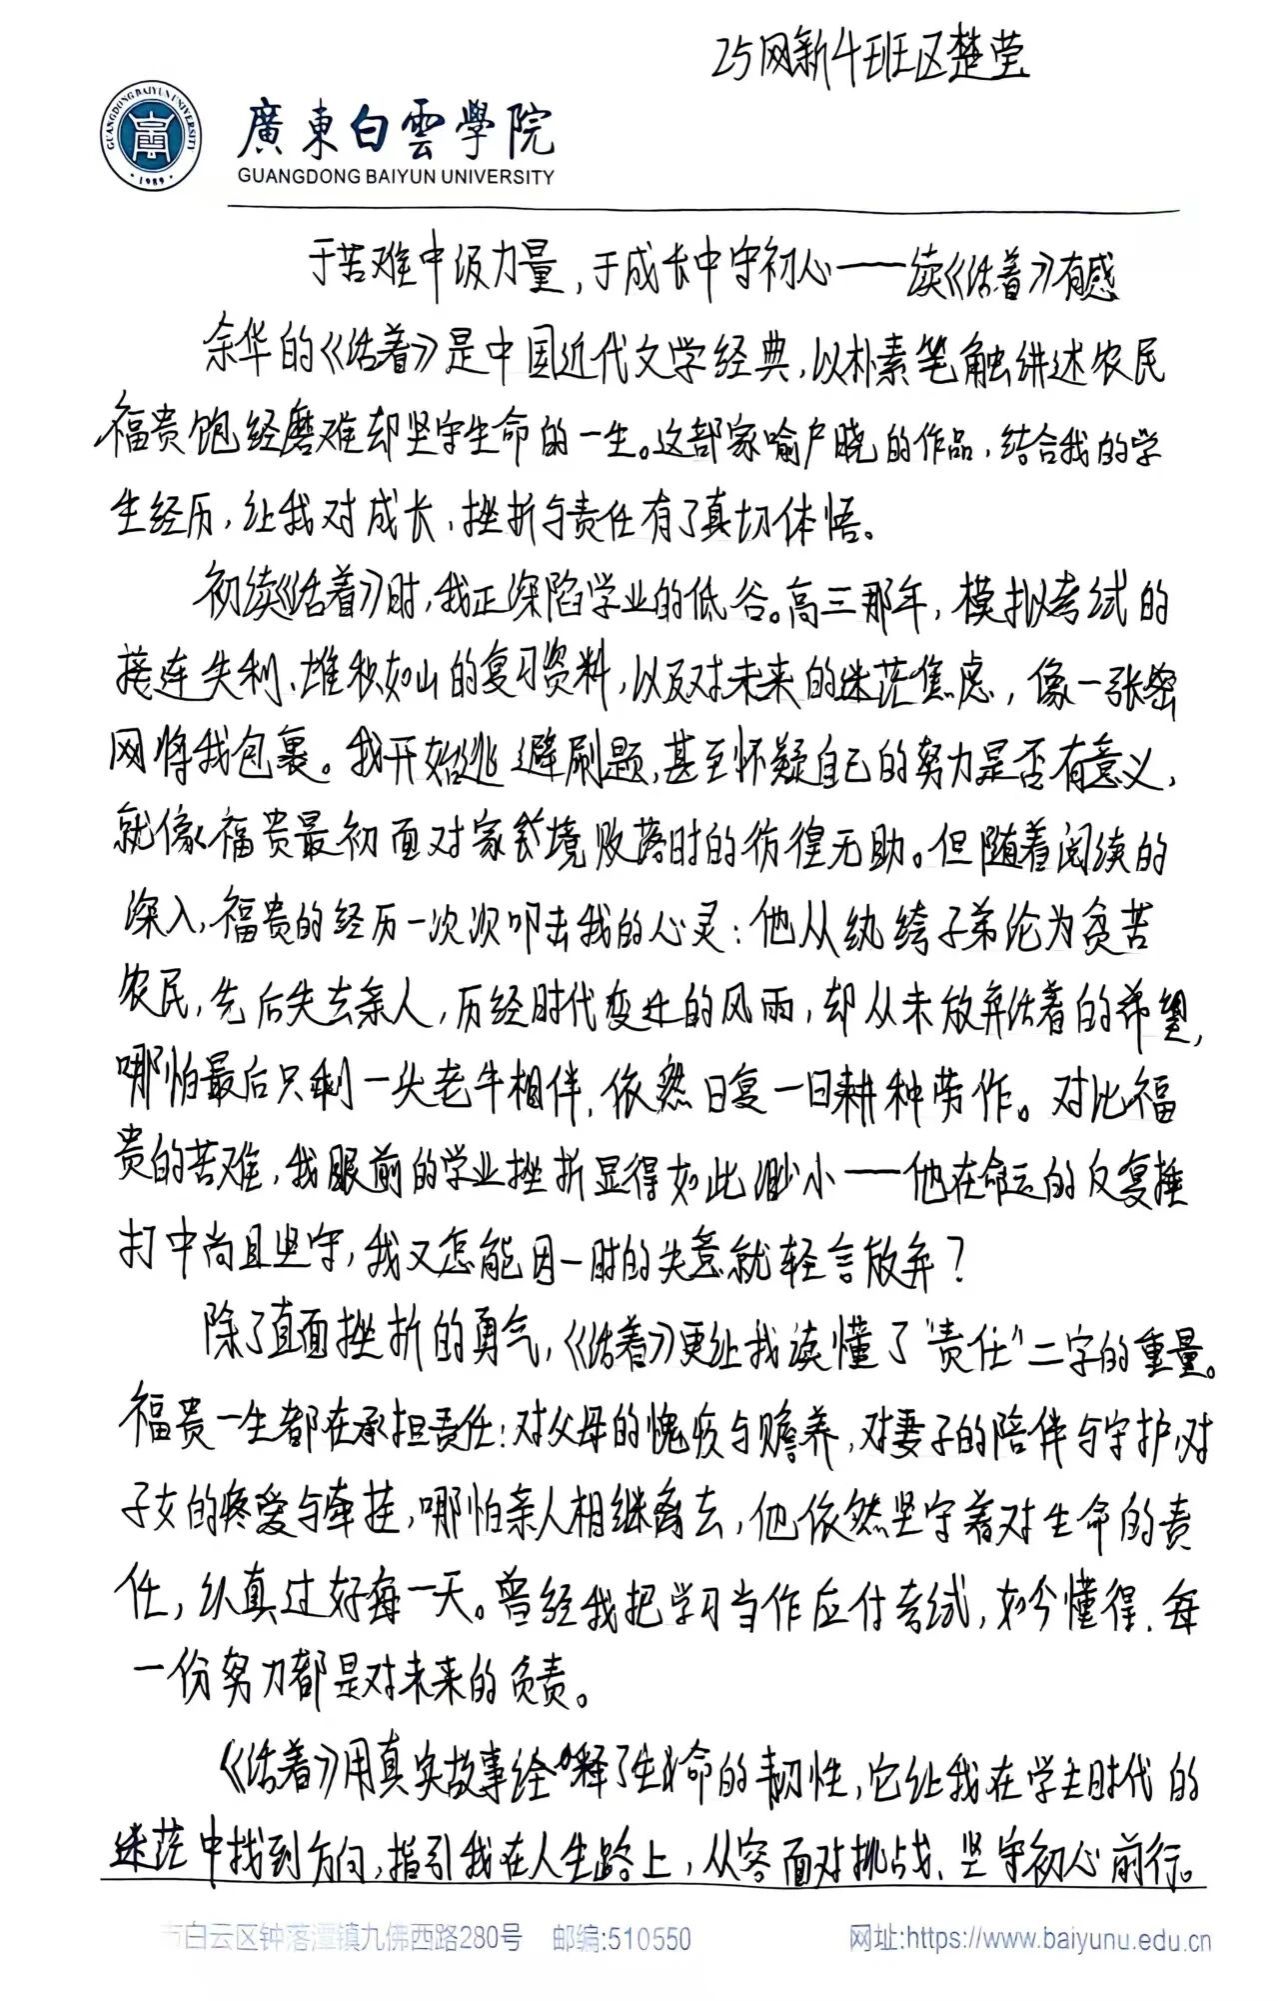 25网新4班区楚莹
廣東白雲學院
GUANGDONG BAIYUN UNIVERSITY
GUANGDONG BAIYUN UNIVERSITY
·1989·
于苦难中汲力量，于成长中守初心——读《活着》有感
余华的《活着》是中国近代文学经典，以朴素笔触讲述农民
福贵饱经磨难却坚守生命的一生。这部家喻户晓的作品，结合我的学
生经历，让我对成长、挫折与责任有了真切体悟。
初读《活着》时，我正深陷学业的低谷。高三那年，模拟考试的
接连失利、堆积如山的复习资料，以及对未来的迷茫焦虑，像一张密
网将我包裹。我开始逃避刷题，甚至怀疑自己的努力是否有意义，
就像福贵最初面对家境败落时的彷徨无助。但随着阅读的
深入，福贵的经历一次次叩击我的心灵：他从纨绔子弟沦为贫苦
农民，先后失去亲人，历经时代变迁的风雨，却从未放弃活着的希望，
哪怕最后只剩一头老牛相伴，依然日复一日耕种劳作。对比福
贵的苦难，我眼前的学业挫折显得如此渺小——他在命运的反复捶
打中尚且坚守，我又怎能因一时的失意就轻言放弃？
除了直面挫折的勇气，《活着》更让我读懂了“责任”二字的重量。
福贵一生都在承担责任：对父母的愧疚与赡养，对妻子的陪伴与守护，对
子女的疼爱与牵挂，哪怕亲人相继离去，他依然坚守着对生命的责
任，认真过好每一天。曾经我把学习当作应付考试，如今懂得，每
一份努力都是对未来的负责。
《活着》用真实故事诠释了生命的韧性，它让我在学生时代的
迷茫中找到方向，指引我在人生路上，从容面对挑战、坚守初心前行。
市白云区钟落潭镇九佛西路280号 邮编:510550 网址:https://www.baiyunu.edu.cn